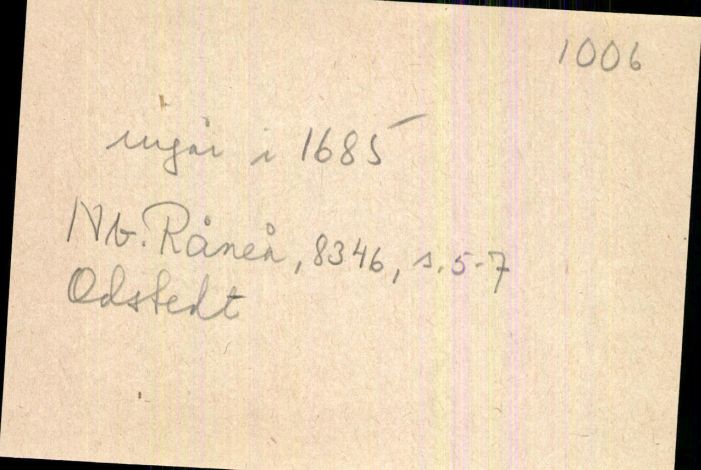 1006
ingår i 1685
Nb. Råneå, 8346, s. 5-7
Odstedt